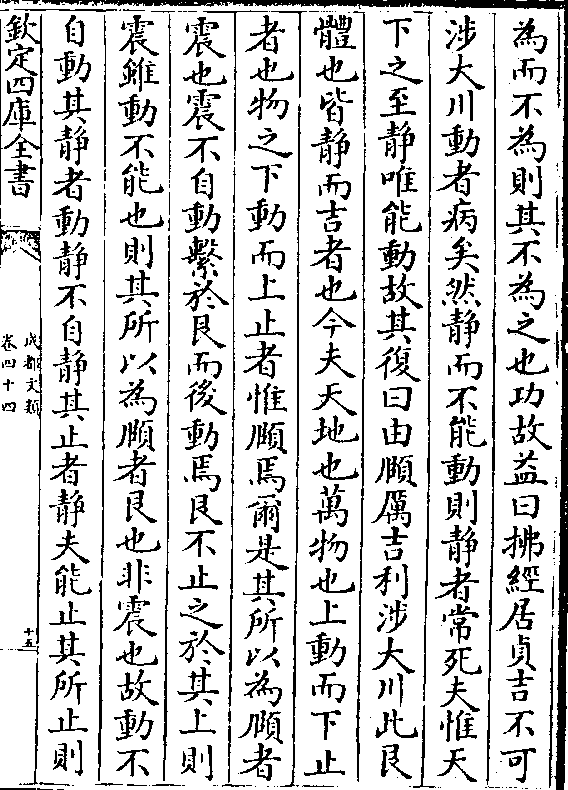 為而不為則其不為之也功故益曰拂經居貞吉不可
涉大川動者病矣然静而不能動則静者常死夫惟天
下之至静唯能動故其復曰由頤厲吉利涉大川此艮
體也皆静而吉者也今夫天地也萬物也上動而下止
者也物之下動而上止者惟頤焉爾是其所以為頤者
震也震不自動繫於艮而後動焉艮不止之於其上則
震雖動不能也則其所以為頤者艮也非震也故動不
自動其静者動静不自静其止者静夫能止其所止則
欽定四庫全書
成都文類
卷四十四
十五